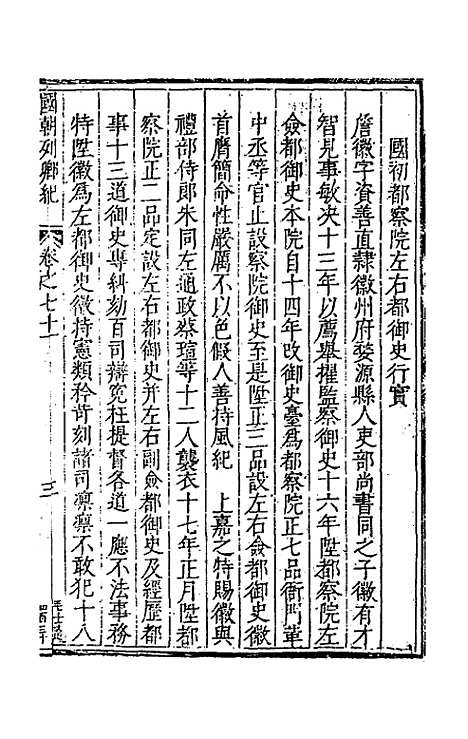 國初都察院左右都御史行實
詹徽字資善直隸徽州府婺源縣人吏部尚書同之子徽有才
智見事敏決十三年以薦舉擢監察御史十六年陞都察院左
僉都御史本院自十四年改御史臺爲都察院正七品衙門革
中丞等官止設察院御史至是陞正三品設左右僉都御史徽
首膺簡命性嚴厲不以色假人善持風紀 上嘉之特賜徽與
禮部侍郎朱同左通政蔡瑄等十二人襲衣十七年正月陞都
察院正二品定設左右都御史并左右副僉都御史及經歷都
事十三道御史專糾劾百司辯冤枉提督各道一應不法事務
特陞徽爲左都御史徽持憲類矜苛刻諸司凛凛不敢犯十八
國朝列卿紀
卷之七十一
三